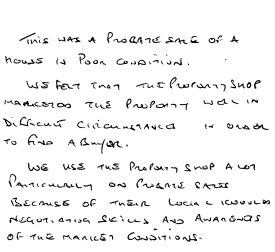 THIS WAS A PROBATE SALE OF A
HOUSE IN POOR CONDITION.
WE FELT THAT THE PROPERTY SHOP
MARKETED THE PROPERTY WELL IN
DIFFICULT CIRCUMSTANCES IN ORDER
TO FIND A BUYER.
WE USE THE PROPERTY SHOP A LOT
PARTICULARLY ON PROBATE SALES
BECAUSE OF THEIR LOCAL KNOWLEDGE
NEGOTIATING SKILLS AND AWARENESS
OF THE MARKET CONDITIONS.